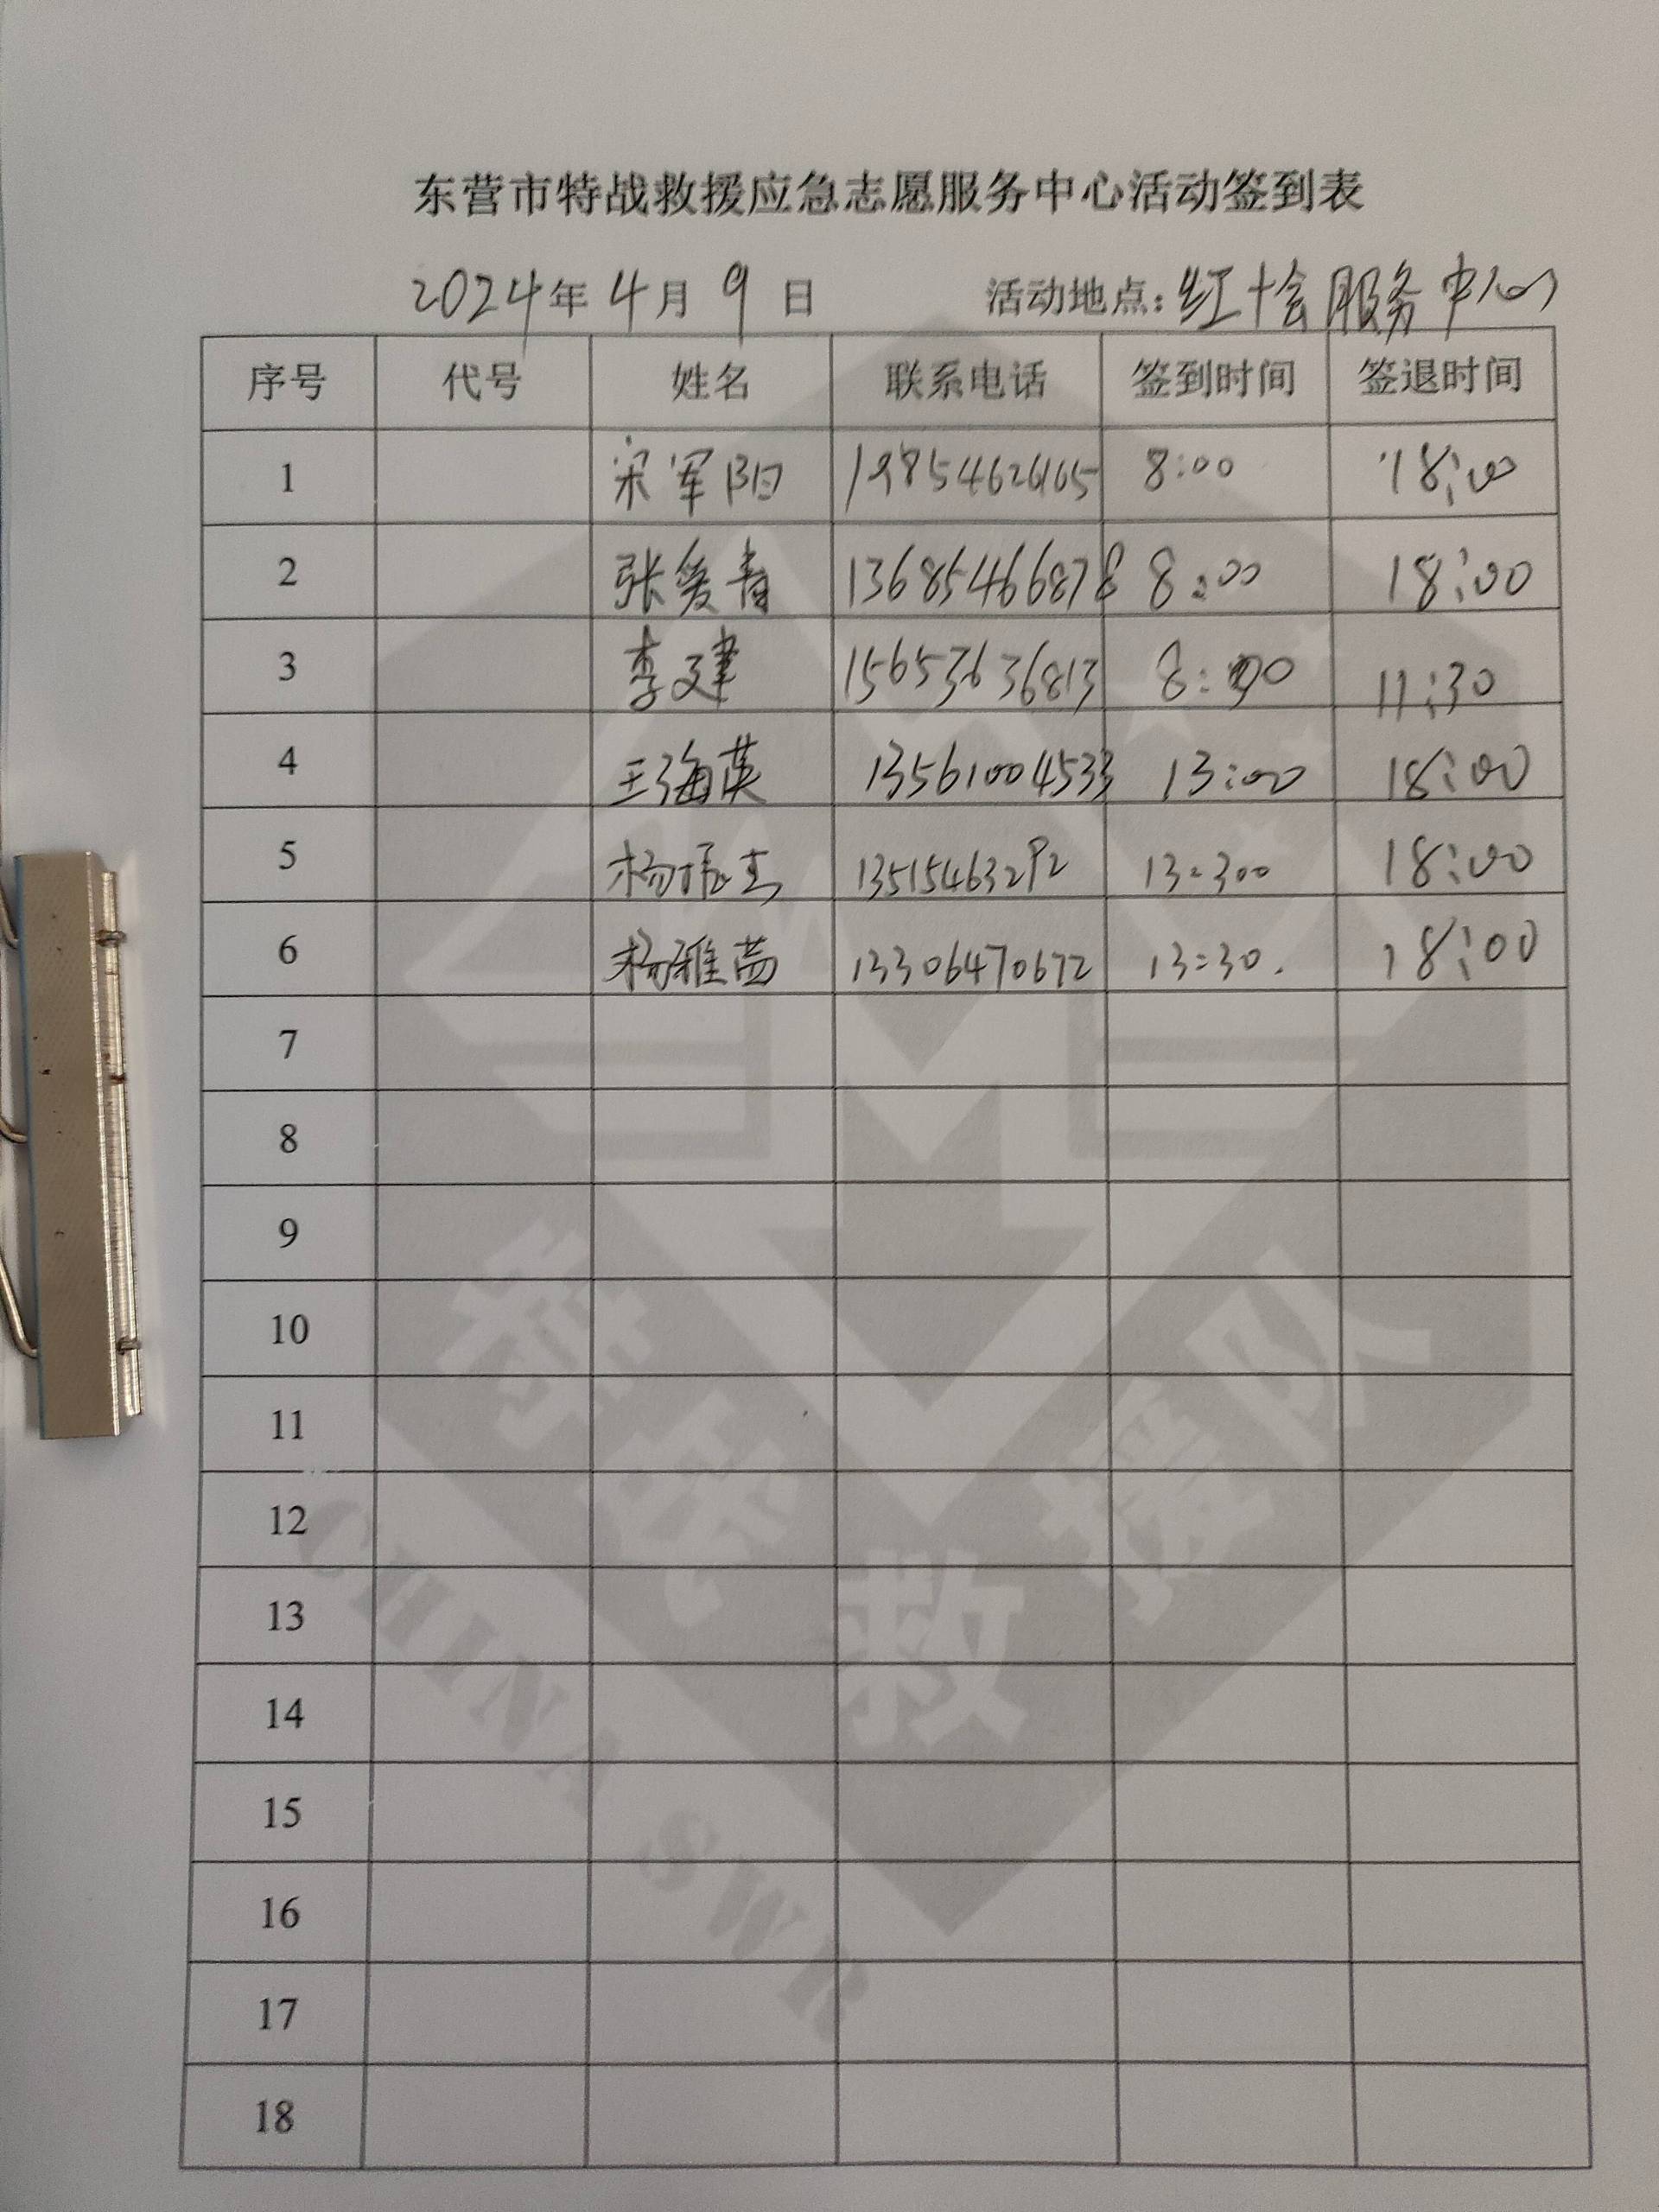 东营市特战救援应急志愿服务中心活动签到表
2024年 4月 9日 活动地点:红十会服务中心
序号 代号 姓名 联系电话 签到时间 签退时间
1 宋军阳 8:00 18:00
2 张爱青 13685466878 8:00 18:00
3 李建 15653636813 8:00 11:30
4 王海英 13561004533 13:00 18:00
5 13515463292 13:300 18:00
6 杨雅茜 13306470672 13:30. 18:00
7
8
9
10
11
12
13
14
15
16
17
18
特战救援队
CHINA SWR